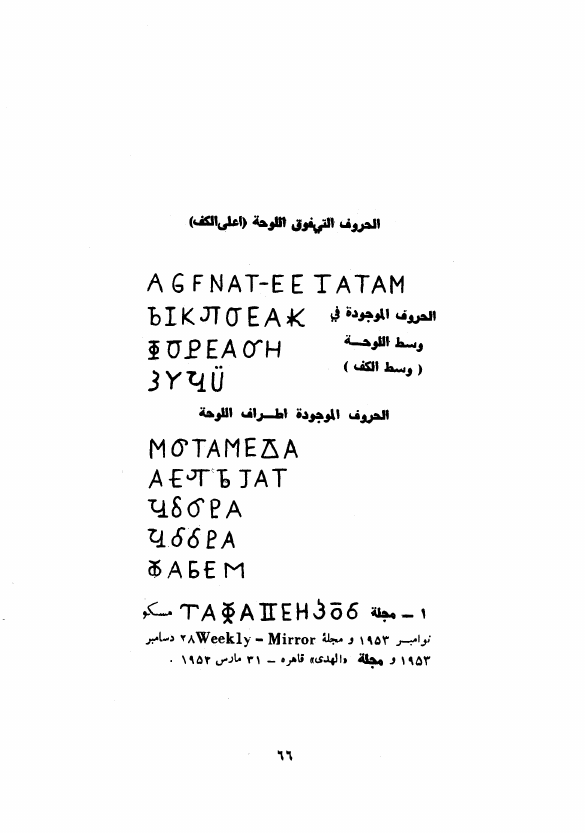 الحروف التي فوق اللوحة (اعلى الكف)
AGFNAT-EE IATAM
ЪIKJTƠEAK الحروف الموجودة في
ФƠPEAƠH وسط اللوحــة
ЗYЧÜ ( وسط الكف )
الحروف الموجودة اطــراف اللوحة
MƠTAMEΔA
AЄJTЪJAT
Ч8ƠPA
ЧббPA
ФAБEM
١ – مجلة ТАФАПЕНЗŌб مسكو
نوامبــر ١٩٥٣ و مجلة Weekly – Mirror ٢٨ دسامبر
١٩٥٣ و مجلة «الهدى» قاهره – ٣١ مارس ١٩٥٣ .
٦٦